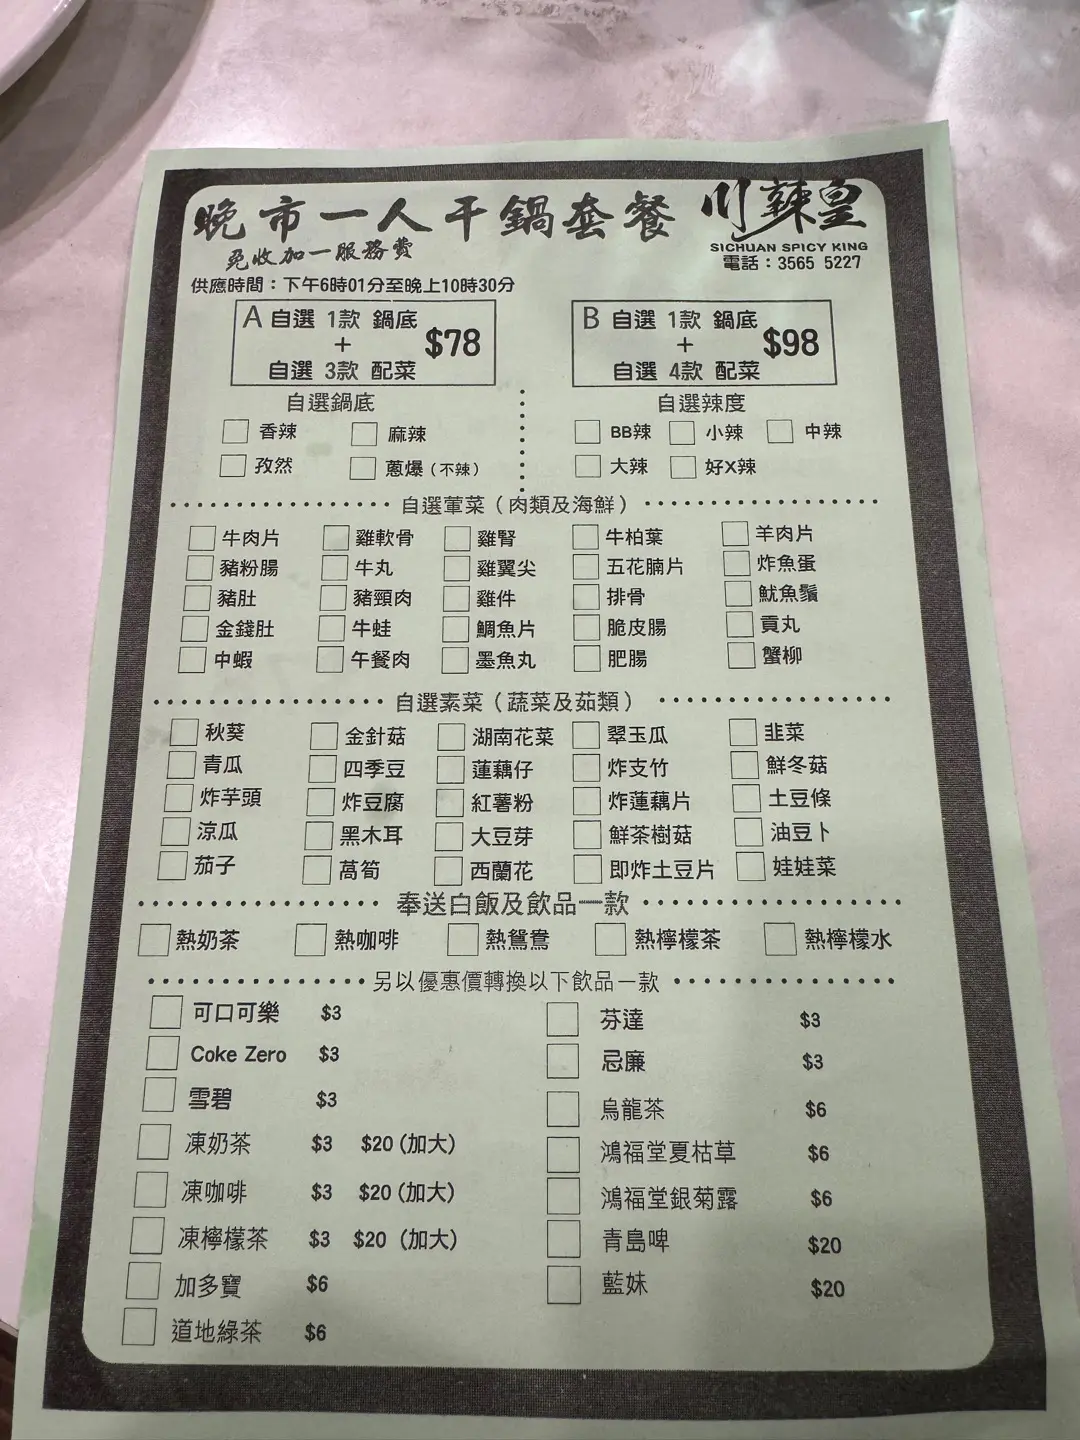 晚市一人干鍋套餐 川辣皇
免收加一服務費 SICHUAN SPICY KING
電話：3565 5227
供應時間：下午6時01分至晚上10時30分
A 自選 1款 鍋底 + 自選 3款 配菜 $78
B 自選 1款 鍋底 + 自選 4款 配菜 $98
自選鍋底 自選辣度
香辣 麻辣 BB辣 小辣 中辣
孜然 蔥爆（不辣） 大辣 好X辣
自選葷菜（肉類及海鮮）
牛肉片 雞軟骨 雞腎 牛柏葉 羊肉片
豬粉腸 牛丸 雞翼尖 五花腩片 炸魚蛋
豬肚 豬頸肉 雞件 排骨 魷魚鬚
金錢肚 牛蛙 鯛魚片 脆皮腸 貢丸
中蝦 午餐肉 墨魚丸 肥腸 蟹柳
自選素菜（蔬菜及茹類）
秋葵 金針菇 湖南花菜 翠玉瓜 韭菜
青瓜 四季豆 蓮藕仔 炸支竹 鮮冬菇
炸芋頭 炸豆腐 紅薯粉 炸蓮藕片 土豆條
涼瓜 黑木耳 大豆芽 鮮茶樹菇 油豆卜
茄子 萵筍 西蘭花 即炸土豆片 娃娃菜
奉送白飯及飲品一款
熱奶茶 熱咖啡 熱鴛鴦 熱檸檬茶 熱檸檬水
另以優惠價轉換以下飲品一款
可口可樂 $3 芬達 $3
Coke Zero $3 忌廉 $3
雪碧 $3 烏龍茶 $6
凍奶茶 $3 $20 (加大) 鴻福堂夏枯草 $6
凍咖啡 $3 $20 (加大) 鴻福堂銀菊露 $6
凍檸檬茶 $3 $20 (加大) 青島啤 $20
加多寶 $6 藍妹 $20
道地綠茶 $6